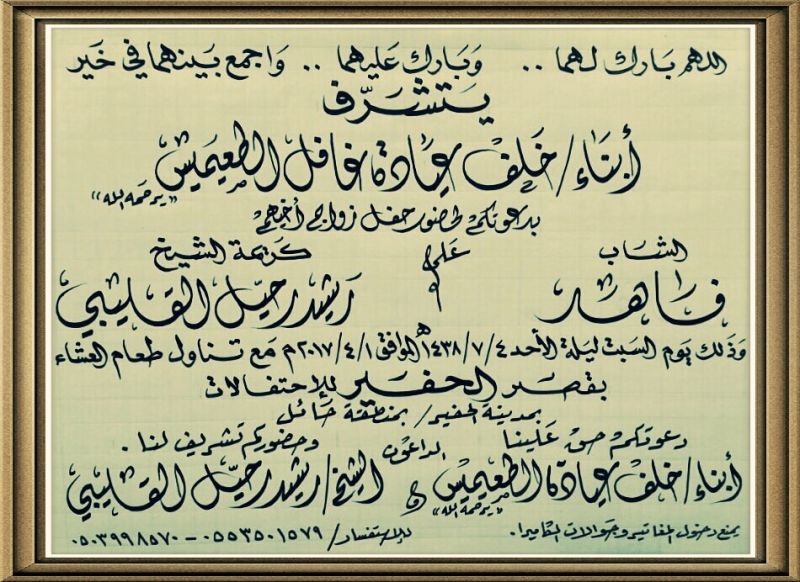 اللهم بارك لهما .. وبارك عليهما .. واجمع بينهما في خير
يتشرّف
أبناء / خلف عيادة غافل الطعيميس
"يرحمه الله"
بدعوتكم لحضور حفل زواج أخيهم
الشاب على كريمة الشيخ
فاهد رشيد رحيّل القليبي
وذلك يوم السبت ليلة الأحد ١٤٣٨/٧/٤هـ الموافق ٢٠١٧/٤/١م مع تناول طعام العشاء
بقصر الحفير للإحتفالات
بمدينة الحفير / بمنطقة حائل
دعوتكم حق علينا وحضوركم تشريف لنا .
الداعون
أبناء / خلف عيادة الطعيميس و الشيخ / رشيد رحيّل القليبي
"يرحمه الله"
يمنع دخول المفاتير وجوالات الكاميرا . للإستفسار / ٠٥٥٣٥٠١٥٧٩ - ٠٥٠٣٩٩٨٥٧٠